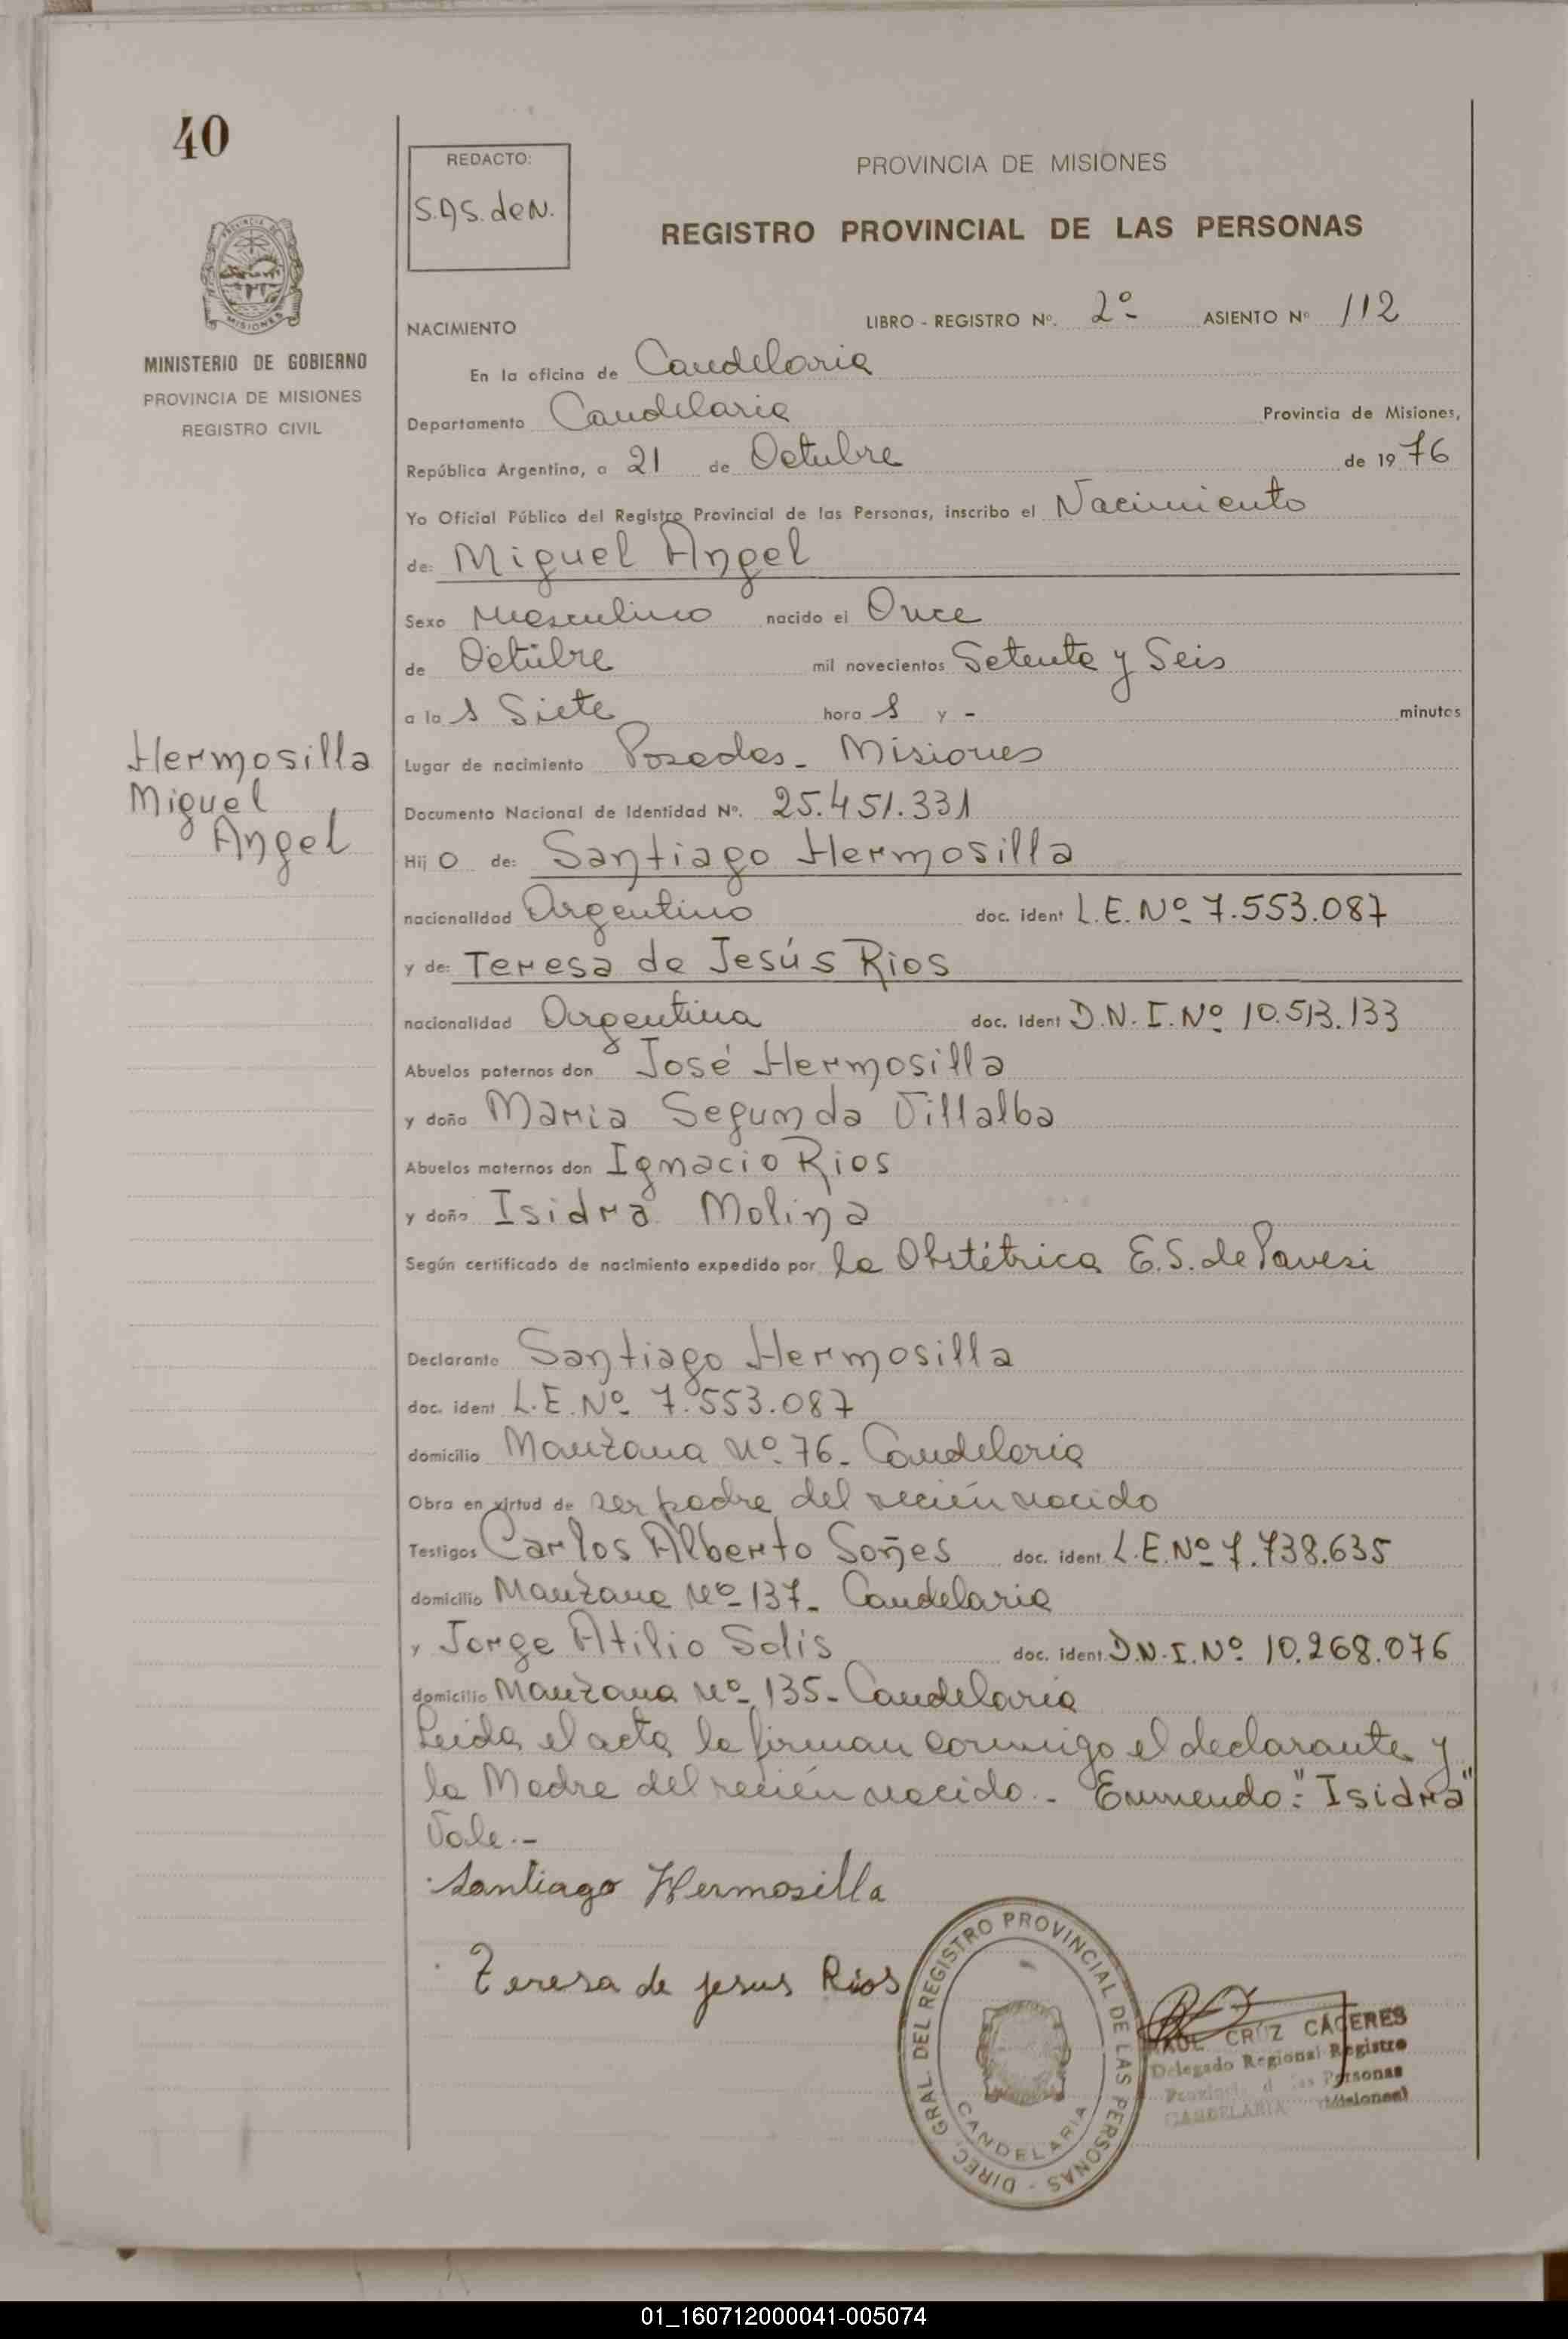 40
REDACTO:
S.A.S. de N.
PROVINCIA DE MISIONES
REGISTRO PROVINCIAL DE LAS PERSONAS
PROVINCIA DE
MISIONES
MINISTERIO DE GOBIERNO
PROVINCIA DE MISIONES
REGISTRO CIVIL
NACIMIENTO LIBRO - REGISTRO Nº. 2º ASIENTO Nº 112
En la oficina de Candelaria
Departamento Candelaria Provincia de Misiones,
República Argentina, a 21 de Octubre de 1976
Yo Oficial Público del Registro Provincial de las Personas, inscribo el Nacimiento
de: Miguel Angel
Sexo Masculino nacido el Once
de Octubre mil novecientos Setenta y Seis
a la s Siete hora s y - minutos
Hermosilla
Miguel
Angel
Lugar de nacimiento Posadas - Misiones
Documento Nacional de Identidad Nº. 25.451.331
Hij o de: Santiago Hermosilla
nacionalidad Argentino doc. ident L.E. Nº 7.553.087
y de: Teresa de Jesús Rios
nacionalidad Argentina doc. ident D.N.I. Nº 10.513.133
Abuelos paternos don José Hermosilla
y doña Maria Segunda Villalba
Abuelos maternos don Ignacio Rios
y doña Isidra Molina
Según certificado de nacimiento expedido por la Obstétrica E.S. de Pavesi
Declarante Santiago Hermosilla
doc. ident L.E. Nº 7.553.087
domicilio Manzana Nº 76 - Candelaria
Obra en virtud de ser padre del recién nacido
Testigos Carlos Alberto Soñes doc. ident. L.E. Nº 7.738.635
domicilio Manzana Nº 137 - Candelaria
y Jorge Atilio Solis doc. ident. D.N.I. Nº 10.268.076
domicilio Manzana Nº 135 - Candelaria
Leida el acta la firman conmigo el declarante y
la Madre del recién nacido. - Enmendo: "Isidra"
Vale.-
Santiago Hermosilla
Teresa de jesus Rios
DIREC. GRAL. DEL REGISTRO PROVINCIAL DE LAS PERSONAS -
CANDELARIA
RAUL CRUZ CÁCERES
Delegado Regional Registro
Personas
CANDELARIA (Misiones)
01_160712000041-005074